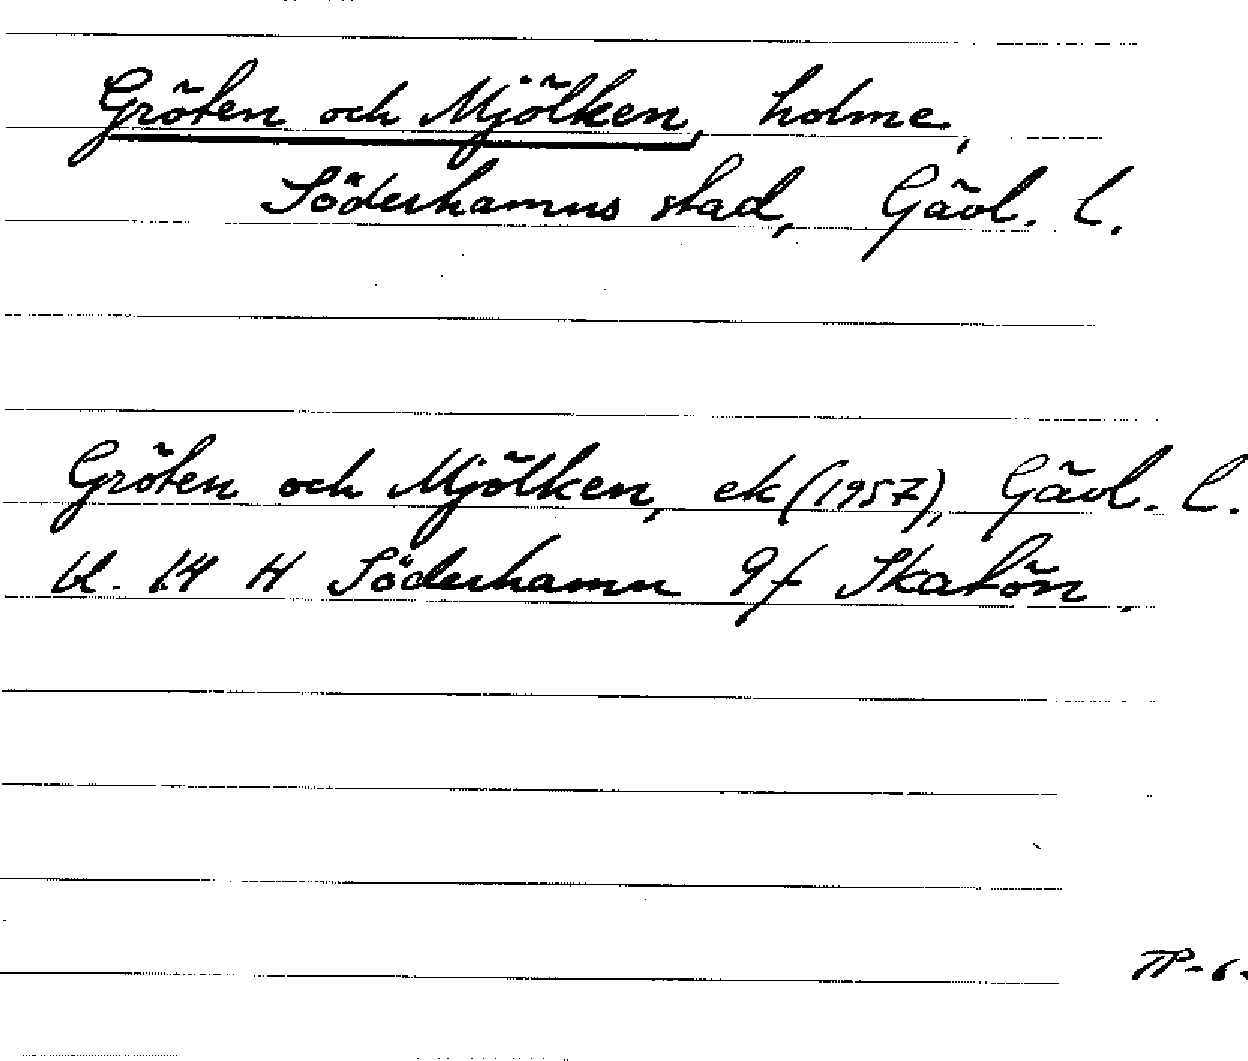 Gröten och Mjölken, holme,
Söderhamns stad, Gävl. l.
Gröten och Mjölken, ek (1957), Gävl. l.
bl. 14 H Söderhamn 9f Skatön
TP-6-